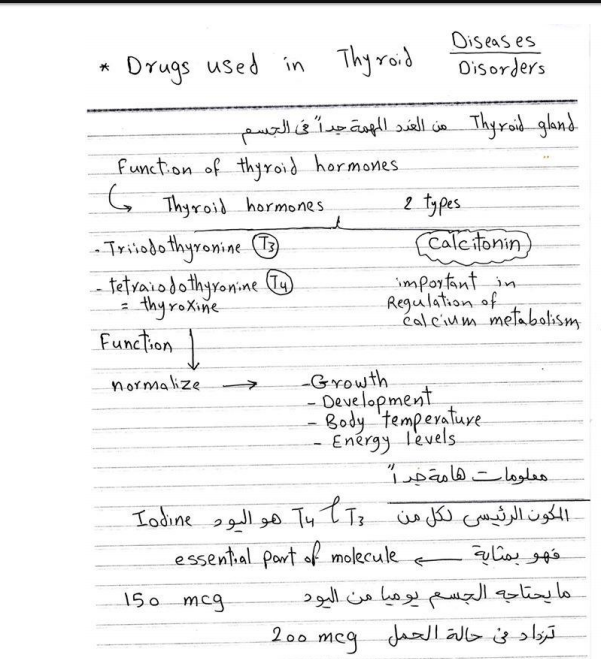 * Drugs used in Thyroid Diseases / Disorders
Thyroid gland من الغدد المهمة جداً فى الجسم
Function of thyroid hormones
Thyroid hormones 2 types
- Triiodothyronine (T3)
Calcitonin
- tetraiodothyronine (T4)
= thyroxine
important in
Regulation of
calcium metabolism
Function
normalize → - Growth
- Development
- Body temperature
- Energy levels
معلومات هامة جداً
المكون الرئيسى لكل من T3 و T4 هو اليود Iodine
فهو بمثابة ← essential part of molecule
ما يحتاجه الجسم يوميا من اليود 150 mcg
تزداد فى حالة الحمل 200 mcg